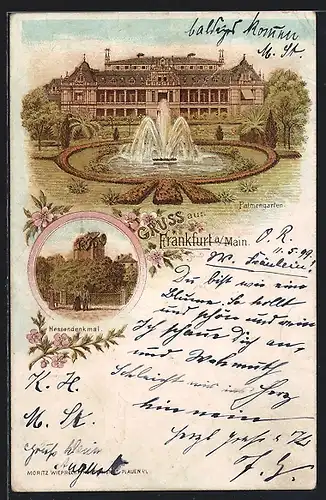 baldiges Kommen
M. St.
Palmengarten.
GRUSS aus
Frankfurt a/Main.
O. R.
11.5.99.
W. Fräulein!
Du bist wie eine
Blume. So hold
und schön und rein
Ich schau dich an,
und Wehmuth
Schleicht mir ins Herz
hinein
Hessendenkmal.
K. H.
M. St.
Gruß
August
MORITZ WIEPRECHT PLAUEN i/V.
F. G.